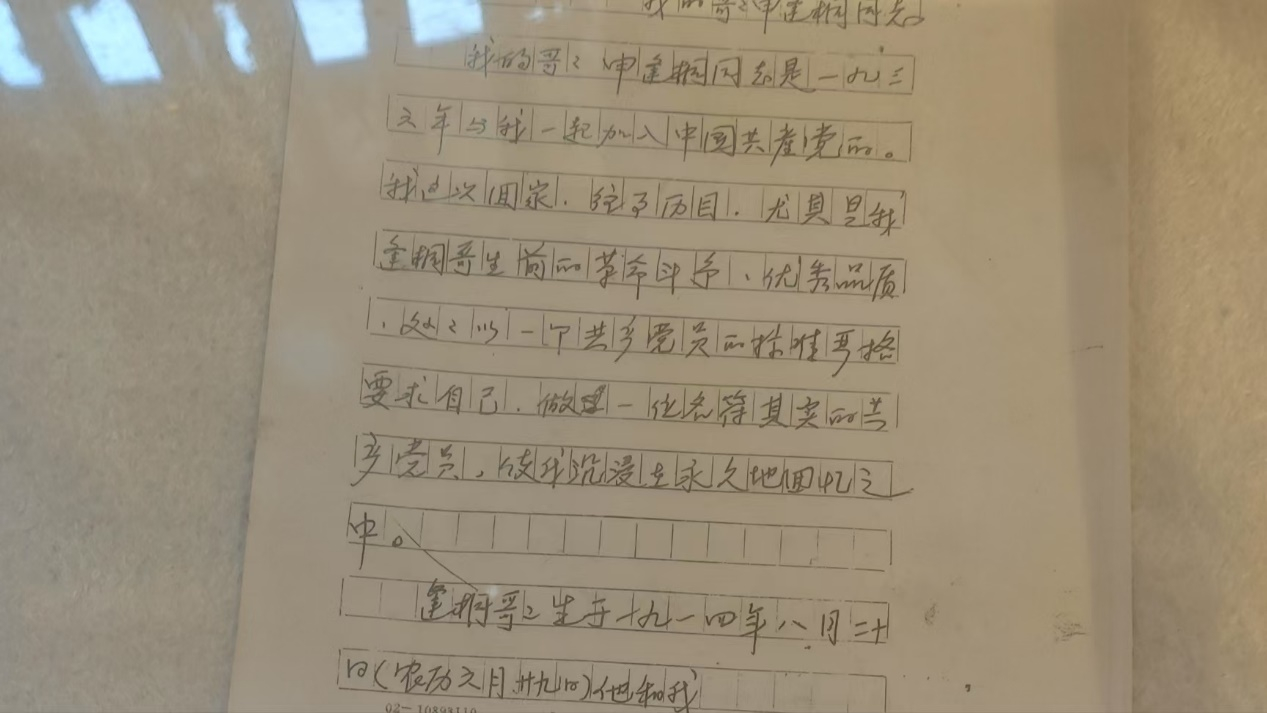 我的哥々申逢桐同志。
我的哥々申逢桐同志是一九三
六年与我一起加入中国共產党的。
我这次回家.往事历目.尤其是我
逢桐哥生前的革命斗争、优秀品质
、处々以一个共产党员的标准严格
要求自己.做过一位名符其实的共
产党员,使我沉浸在永久地回忆之
中。
逢桐哥々生于十九一四年八月二十
日(农历六月廿九日)他和我
02-10898110